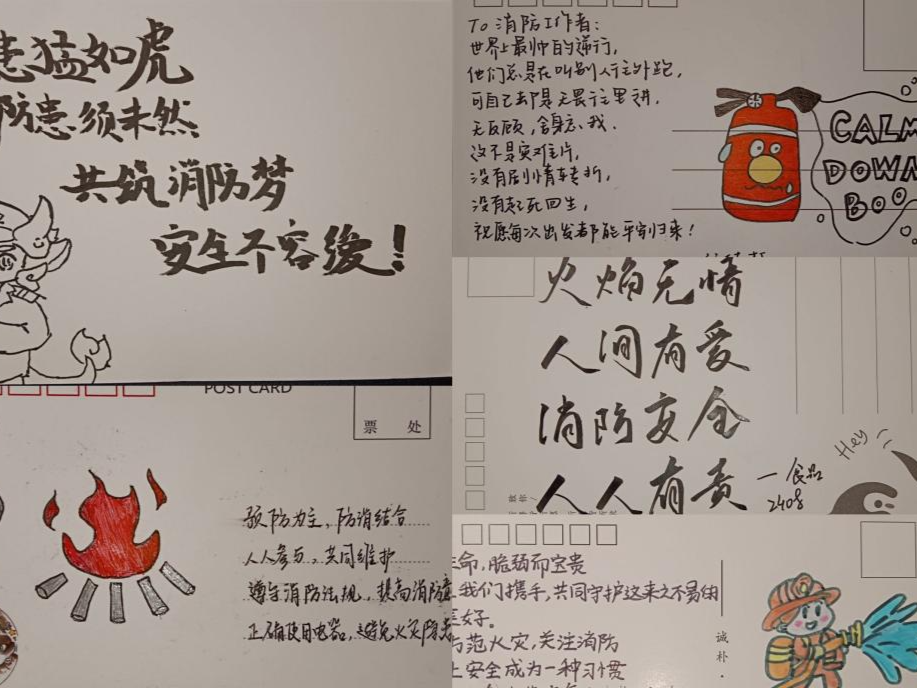 患猛如虎
防患须未然
共筑消防梦
安全不容缓！
To 消防工作者：
世界上最帅的逆行，
他们总是在叫别人往外跑，
可自己却是无畏往里进，
无反顾，舍身忘我．
这不是灾难片，
没有剧情转折，
没有起死回生，
祝愿每次出发者都能平安归来！
CALM
DOWN
BOO
火焰无情
人间有爱
消防安全
人人有责
一食品
2408
Hey
POST CARD
票 处
预防为主，防消结合
人人参与，共同维护
遵守消防法规，提高消防意
正确使用电器，避免火灾隐患
生命，脆弱而宝贵
我们携手，共同守护这来之不易的
美好。
防范火灾，关注消防
让安全成为一种习惯
诚
朴